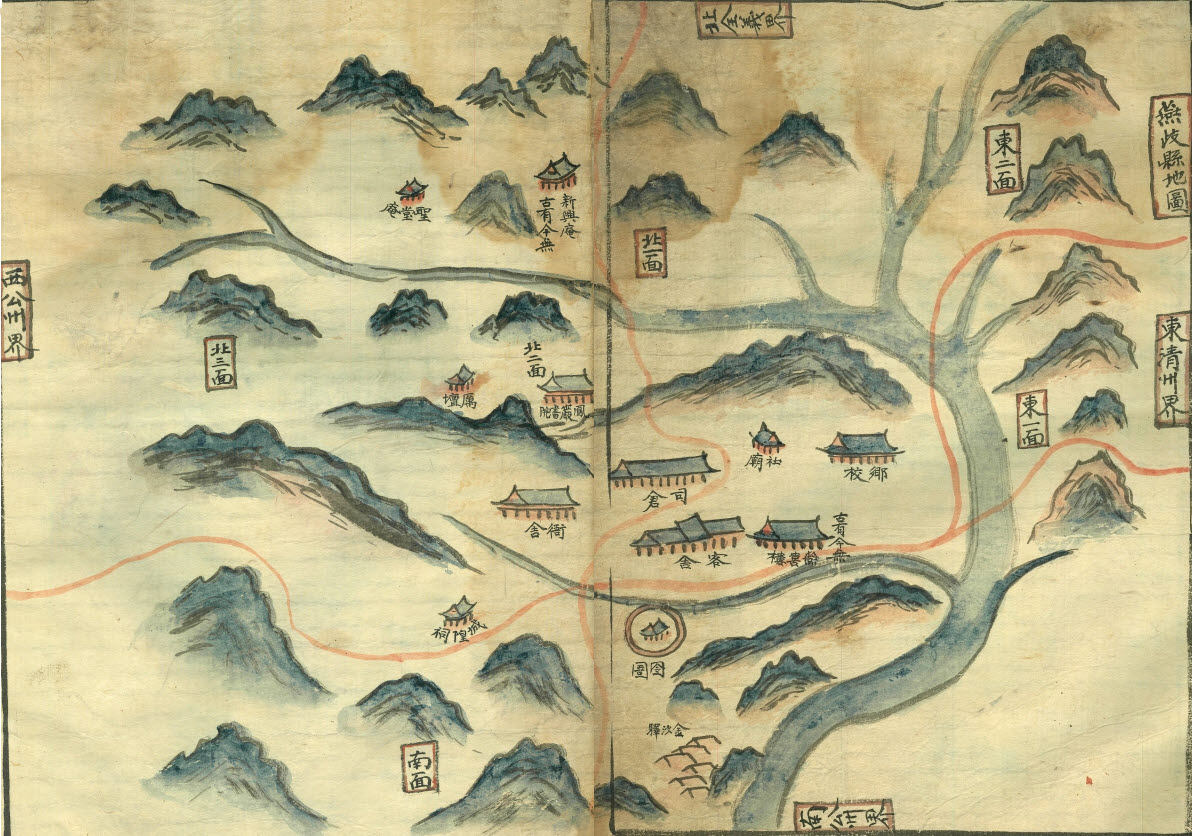 燕歧縣地圖
北全義界
東二面
東清州界
東一面
北一面
新興庵
古有今無
聖堂庵
西公州界
北三面
北二面
厲壇
鳳巖書院
社廟
鄉校
司倉
衙舍
客舍
古有今無
城隍祠
囹圄
金沙驛
南面
南公州界